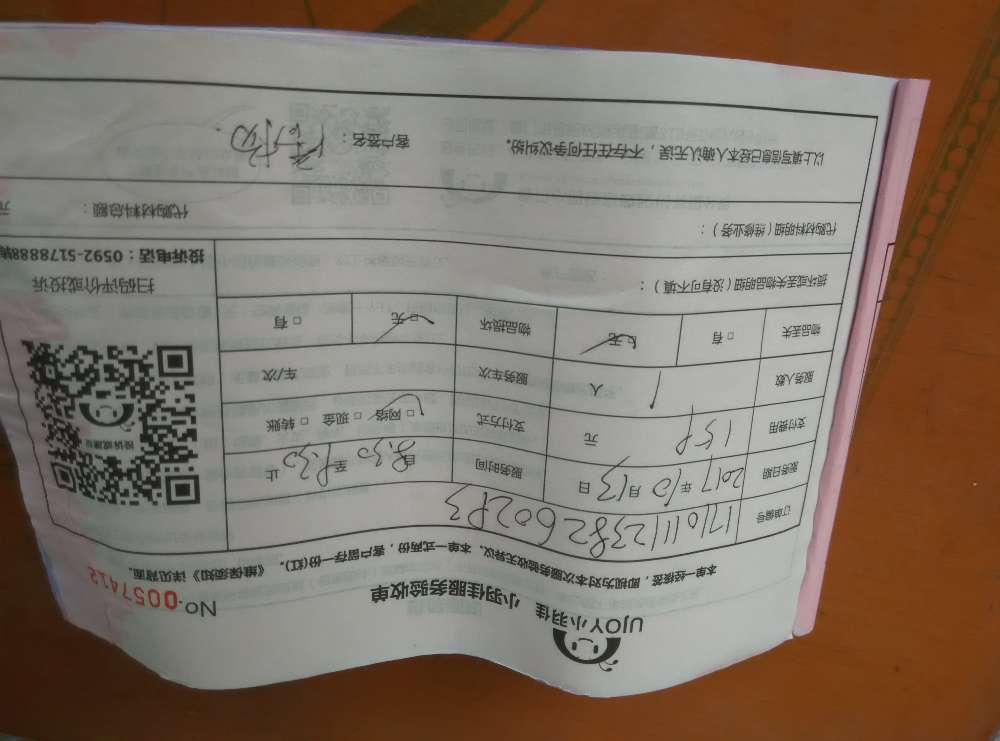 UJOY小羽佳 小羽佳服务验收单
No.0057412
本单一经核签，即视为对本次服务验收无异议。本单一式两份，客户留存一份(红)。《维保须知》详见背面。
订单编号
服务日期 2017年10月13日 服务时间 自8:30至 止
支付费用 元 支付方式 □网络 □现金 □转账
服务人数 1 人 服务车次 车/次
物品丢失 □有 □无 物品损坏 □无 □有
损坏或丢失物品明细（没有可不填）：
投诉或建议
扫码评价或投诉
投诉电话：0592-5178888转
代购材料明细（维修业务）：
代购材料总额： 元
以上填写信息已经本人确认无误，不存在任何争议纠纷。 客户签名：